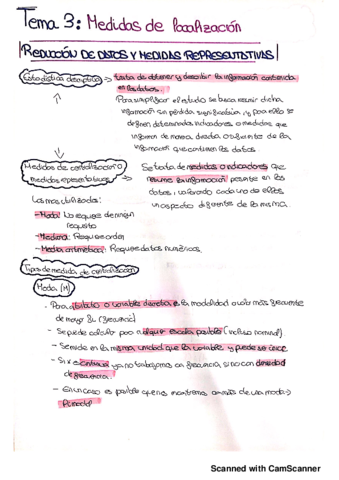 Tema 3: Medidas de localización
REDUCCIÓN DE DATOS Y MEDIDAS REPRESENTATIVAS
Estadística descriptiva → tratar de obtener y describir la información contenida
en los datos.
Para simplificar el estudio se busca resumir dicha
información sin perdida significativa, y para ello se
definen determinados indicadores o medidas que
informen de manera directa o suficiente de la
información que contienen los datos
Medidas de centralización o
medidas representativas →
Se trata de medidas o indicadores que
resume la información presente en los
datos, valorando cada una de ellas
un aspecto diferentes de la misma.
Las más utilizadas:
- Moda: No requiere de ningún
requisito
- Mediana: Requiere orden
- Media aritmética: Requiere datos numéricos.
Tipos de medida de centralización
Moda (M)
- Para atributo o variable discreta es la modalidad o valor más frecuente
de mayor (frecuencia)
- Se puede calcular para cualquier escala posible (incluso nominal)
- Se mide en la misma unidad que la variable y puede ser única
- Si x es continua ya no trabajamos con frecuencia, sino con densidad
de frecuencia.
- En un caso es posible que nos mostremos a más de una moda →
Plurimodal
Scanned with CamScanner